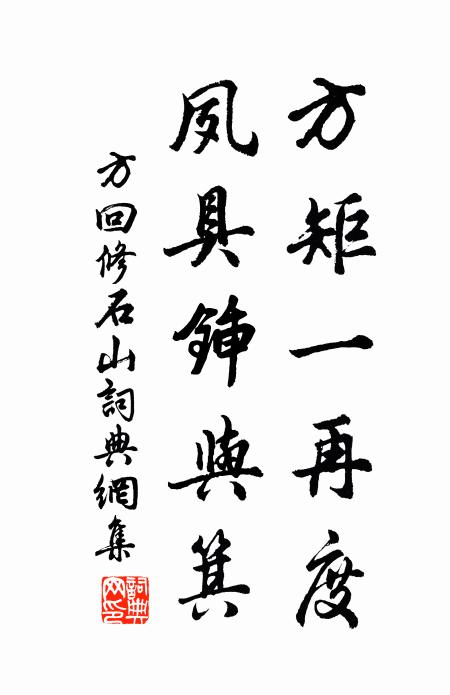 方矩一再度
夙具鍤與箕
方回修石山詞典網集
詞典网印